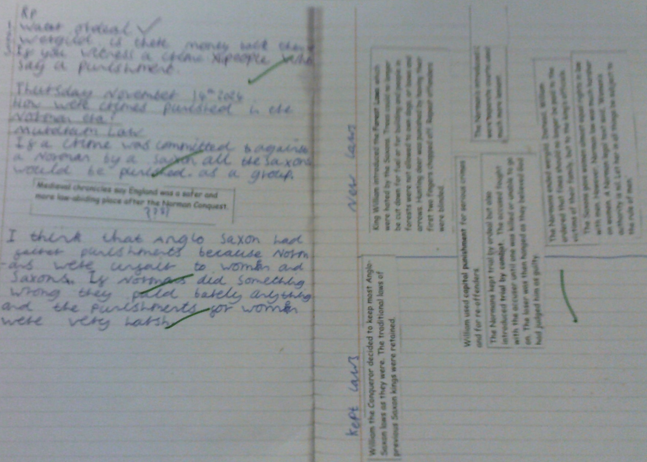 RP
Water ordeal
Wergild is where money
If you witness a crime people
say a punishment.
Thursday November 14th 2024
How were crimes punished in the
Norman era?
Murdrum Law
If a crime was committed against
a Norman by a Saxon all the Saxons
would be punised as a group.
Medieval chronicles say England was a safer and
more law-abiding place after the Norman Conquest.
I think that Anglo Saxon had
punishments because Norm
ans were unfair to women and
Saxons. If Normans did something
wrong they paid barely anything
and the punishments for women
were very harsh
Kept laws
New laws
William the Conqueror decided to keep most Anglo-
Saxon laws as they were. The traditional laws of
previous Saxon kings were retained.
King William introduced the Forest Laws which
were hated by the Saxons. Trees could no longer
be cut down for fuel or for building and people in
forests were forbidden to own dogs or bows and
arrows. Hunting deer was punished by having their
first two fingers chopped off. Repeat offenders
were blinded.
William used capital punishment for serious crimes
and for re-offenders.
The Normans kept trial by ordeal but also
introduced trial by combat. The accused fought
with the accuser until one was killed or unable to go
on. The loser was then hanged as they believed God
had judged him as guilty.
The Normans introduced
much more lenient.
The Normans ended wergild. Instead, William
ordered that fines should no longer be paid to the
victims or their family, but to the king's officials.
The Saxons gave women almost equal rights in law
with men. However, Norman law was much harsher
on women. A Norman legal text states 'Women's
authority is nil. Let her in all things be subject to
the rule of men.